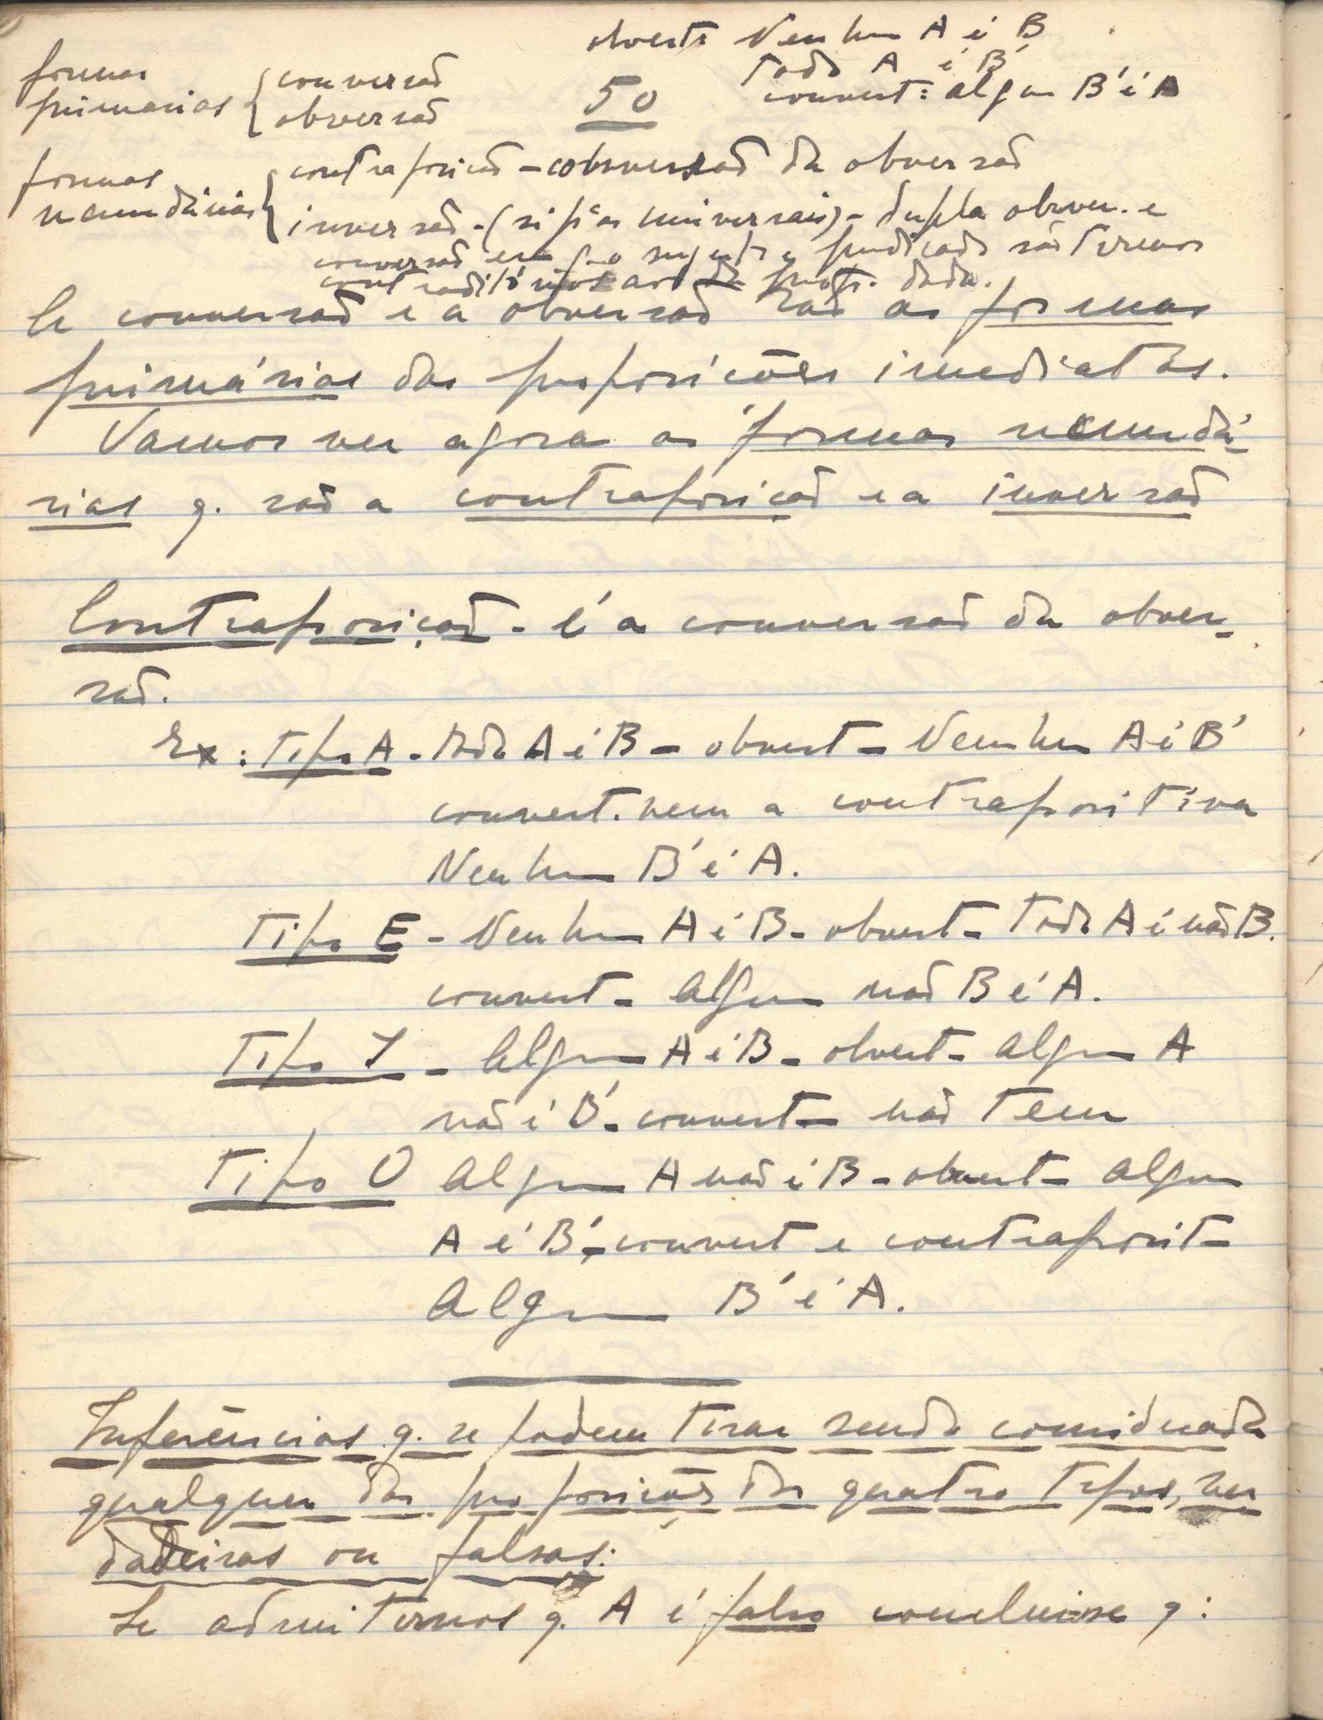 obverte Nenhum A é B
Todo A é B'
convert: algum B' é A
50
formas
primárias
conversão
obversão
formas
secundárias
contraposição - conversão da obversão
inversão - (si pª as universais) - dupla obver. e
conversão em q. o sujeito e predicado são termos
contraditórios aos da prop. dada.
A conversão e a obversão são as formas
primárias das proposições imediatas.
Vamos ver agora as formas secundá-
rias q. são a contraposição e a inversão
Contraposição - é a conversão da obver-
são.
Ex: Tipo A - Todo A é B - obvert - Nenhum A é B'
convert. vem a contrapositiva
Nenhum B' é A.
Tipo E - Nenhum A é B - obvert - Todo A é não B.
convert - Algum não B é A.
Tipo I - Algum A é B - obvert - Algum A
não é B' - convert - não tem
Tipo O Algum A não é B - obvert - Algum
A é B' - convert e contraposit -
Algum B' é A.
Inferências q. se podem tirar sendo considerada
qualquer das proposições dos quatro tipos, ver
dadeiras ou falsas:
Se admitirmos q. A é falso conclui-se q: